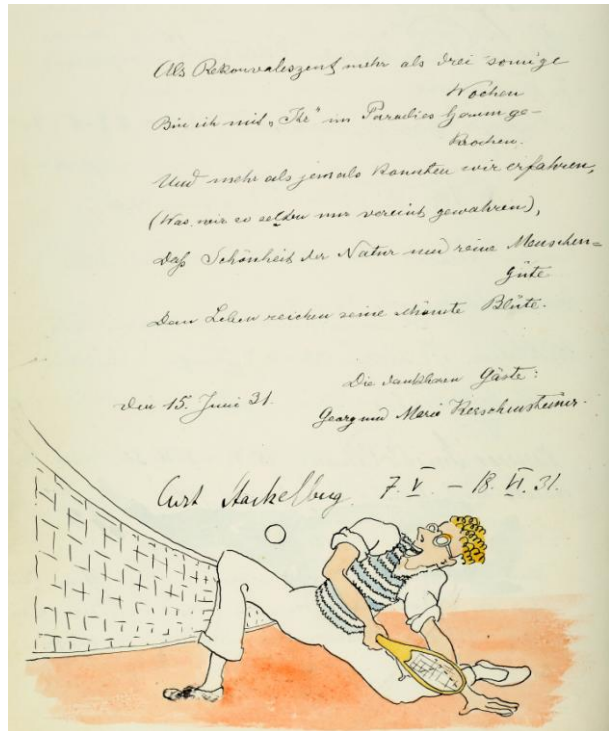 Als Rekonvaleszent mehr als drei sonnige
Wochen
Bin ich mit „Ihr" im Paradies herumge-
krochen.
Und mehr als jemals konnten wir erfahren,
(Was wir so selten nur vereint gewahren),
Daß Schönheit der Natur und reine Menschen=
güte
Dem Leben reichen seine schönste Blüte.
Die dankbaren Gäste:
den 15. Juni 31.
Georg und Marie Kerschensteiner.
Curt Hackelbug. 7. V. – 18. VI. 31.